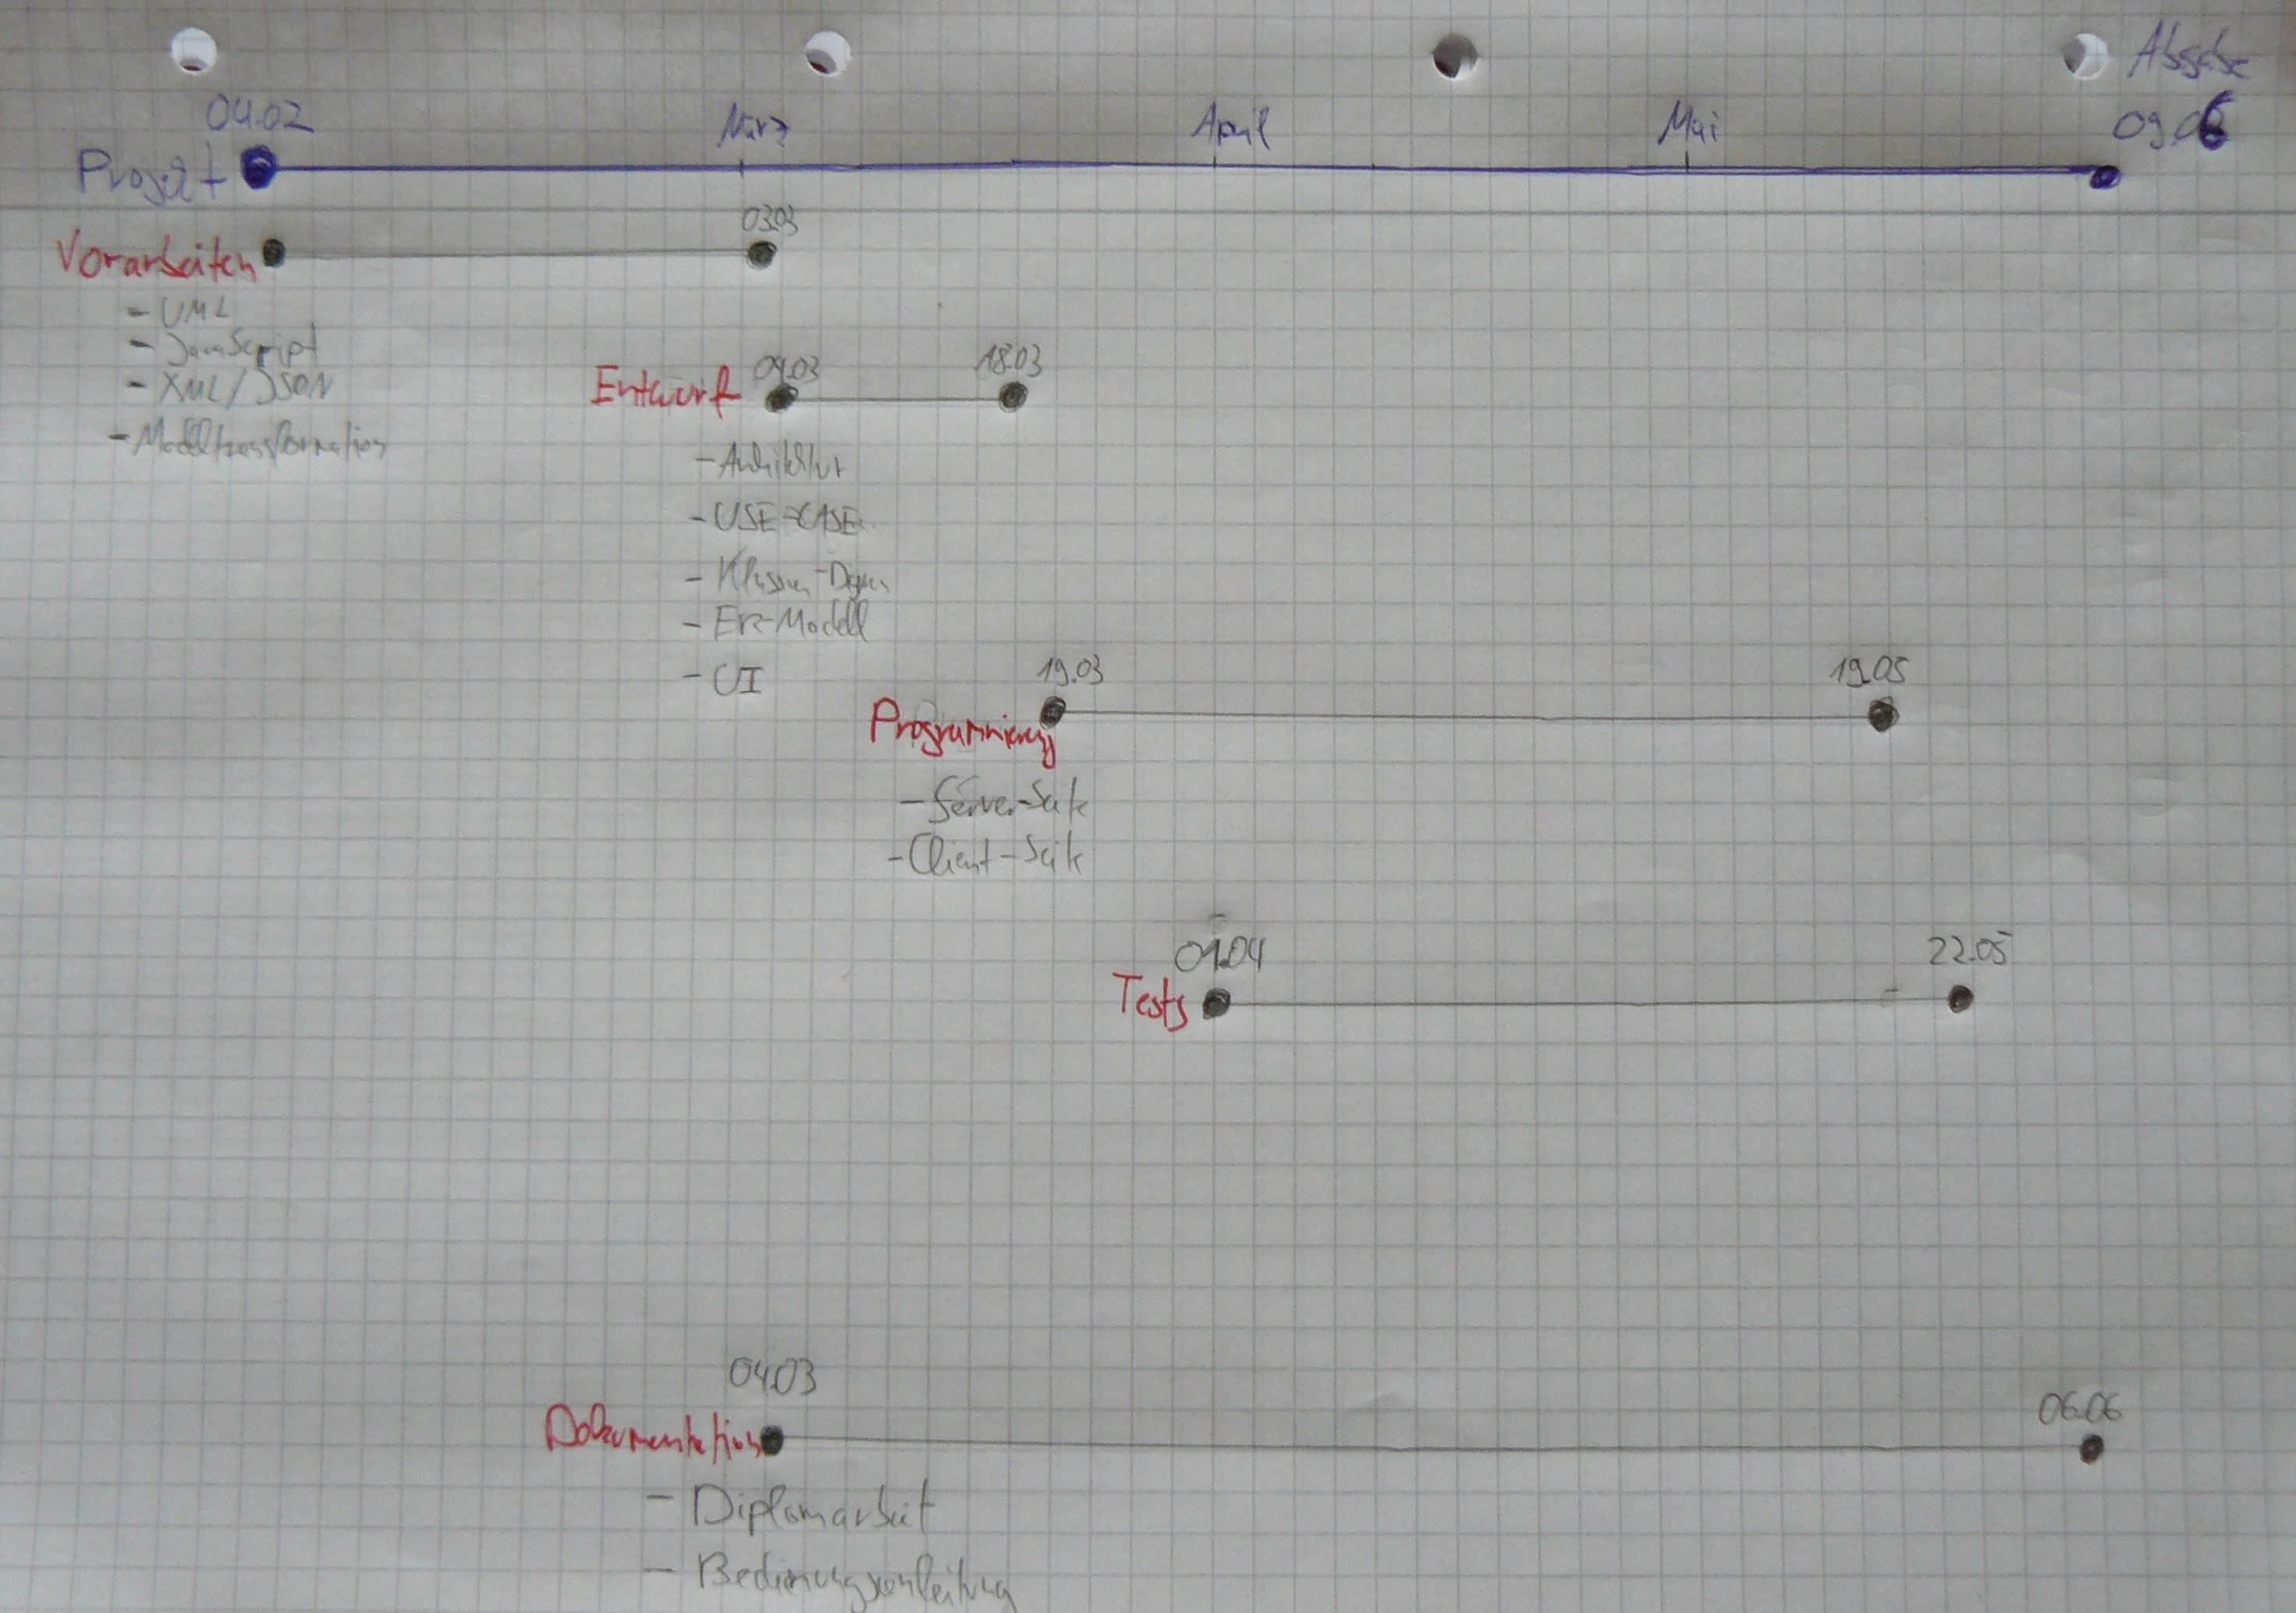 Abgabe
04.02 März April Mai 09.06
Projekt
03.03
Vorarbeiten
- UML
- JavaScript
- XML/JSON
- Modelltransformation
04.03 18.03
Entwurf
- Architektur
- USE-CASE
- Klassen-Diagr.
- ER-Modell
- UI
19.03 19.05
Programmierung
- Server-Seite
- Client-Seite
01.04 22.05
Tests
04.03 06.06
Dokumentation
- Diplomarbeit
- Bedienungsanleitung